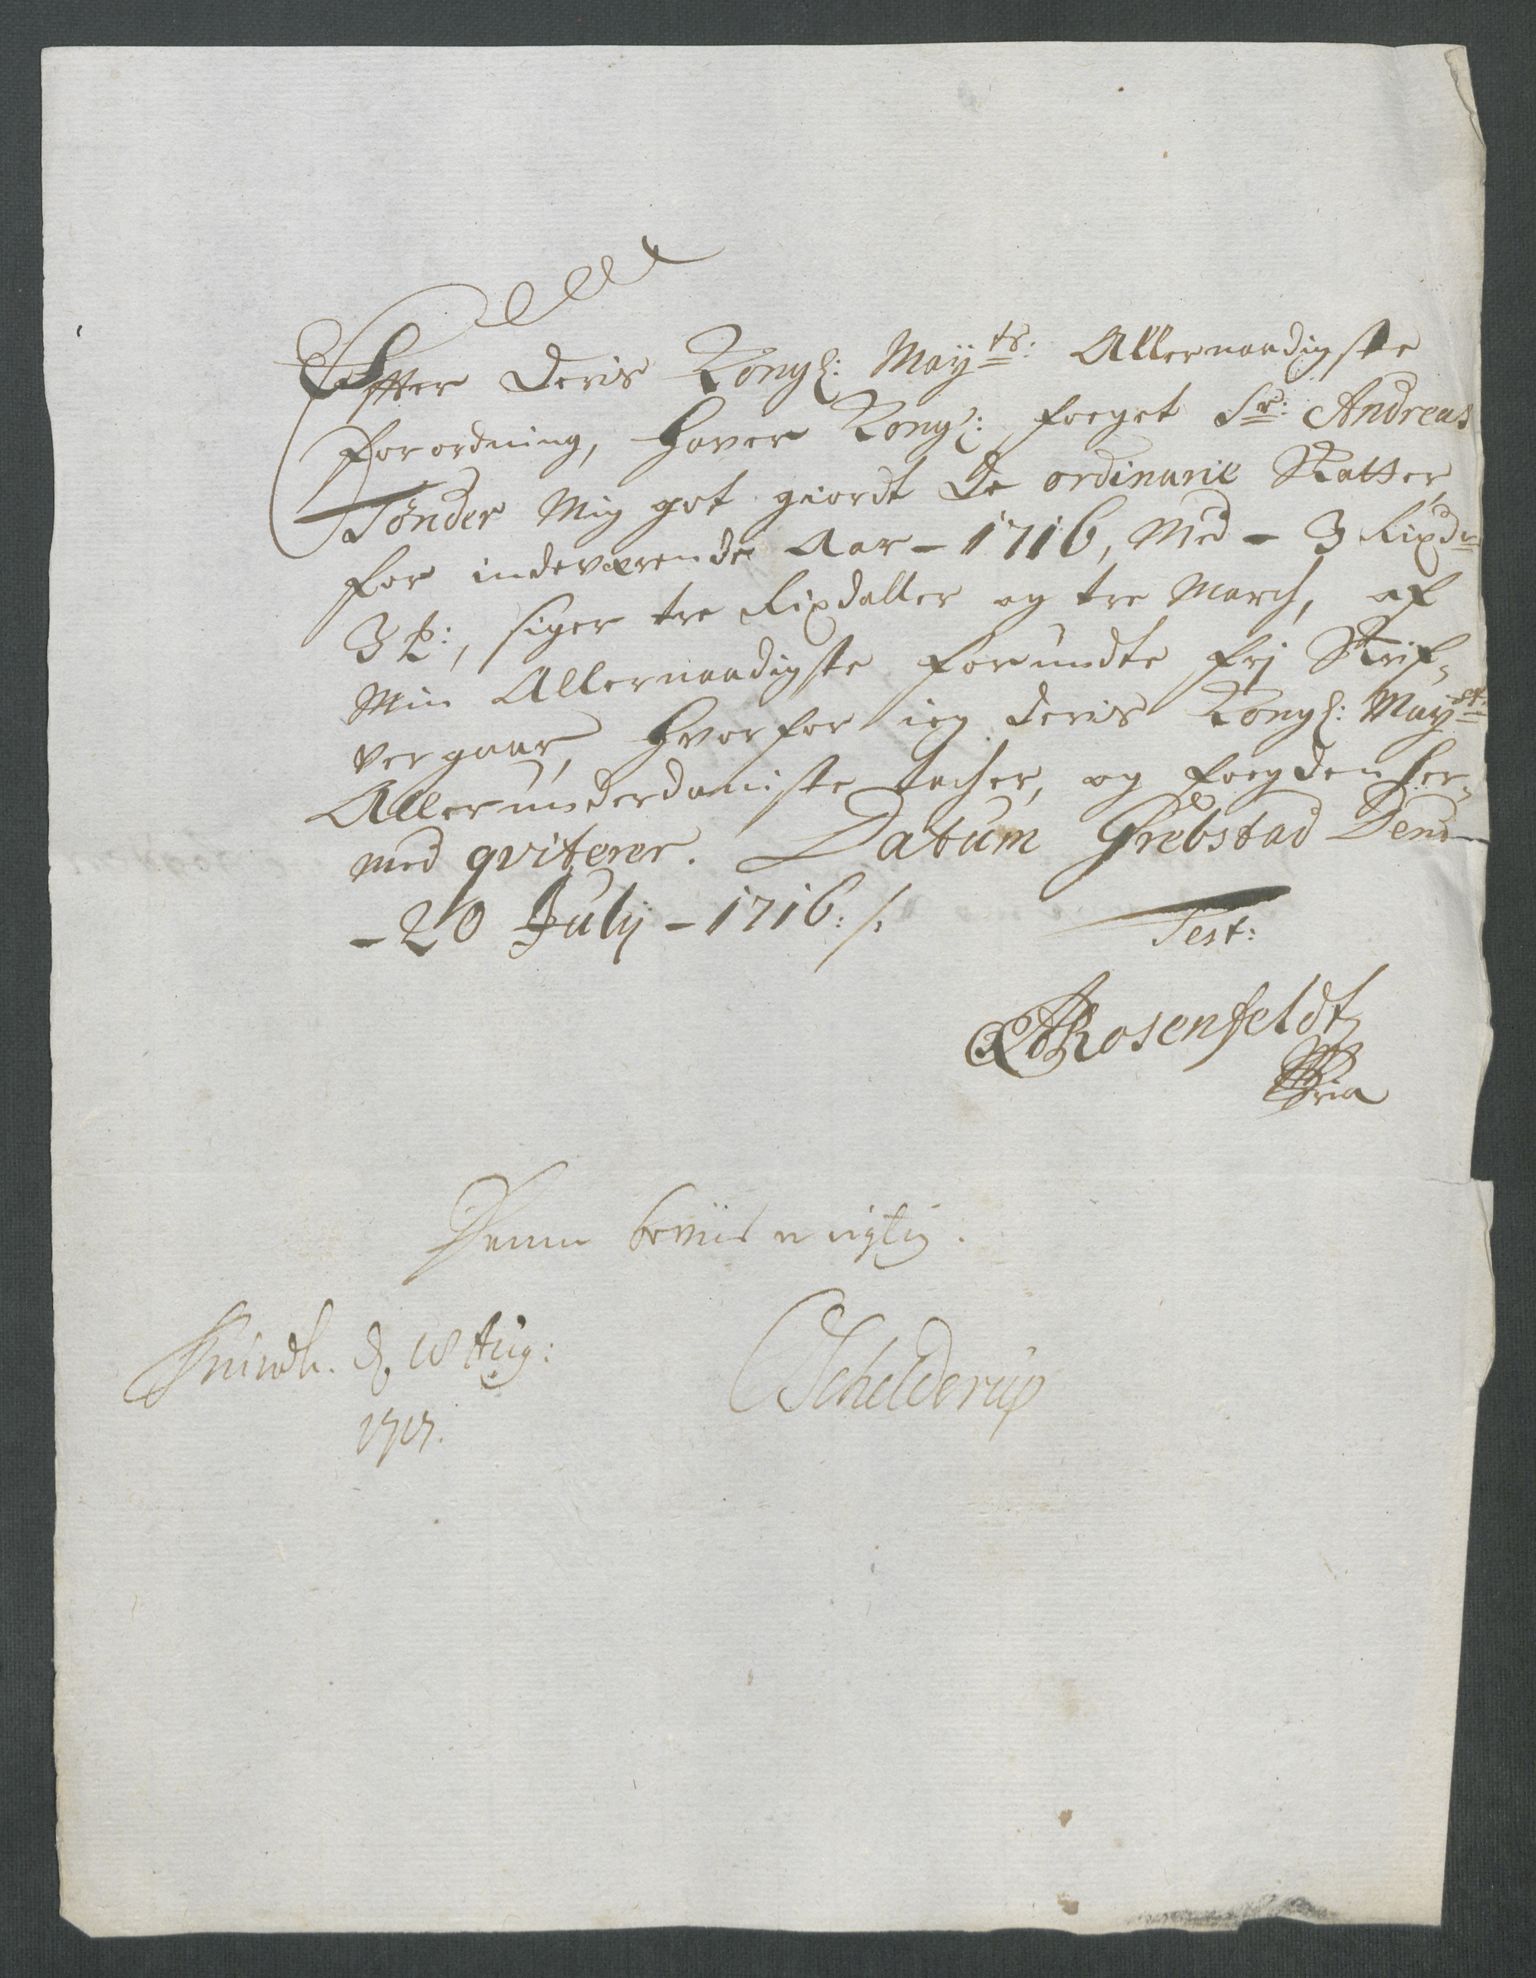 Effter Deris Kongl: Mayts: Allernaadigste
forordning, haver Kongl: foeget Sr: Andreas
Tønder Mig got giordt De ordinarie Skatter,
for indeværende Aar – 1716, Med – 3 Rixdr
3 ꝑ:, siger tre Rixdaller og tre March, af
Min Allernaadigste forundte frj Skrif-
vergaar, hvorfor ieg Deris Kongl: Mayet:
Allerunderdanigste tacher, og foegden her-
med qviterer. Datum Grebstad Dend
– 20 Julij – 1716 : /:
Test:
Rosenfeldt
Mria
Denne beviis er rigtig.
d. 18 Aug:
1717.
CSchelderup